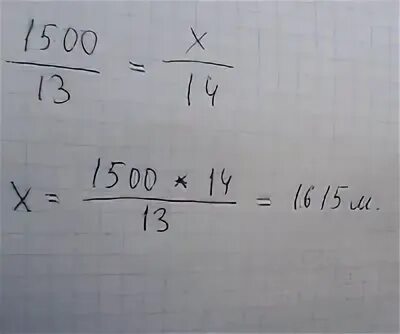 1500/13 = x/14
X = 1500 * 14/13 = 1615 м.